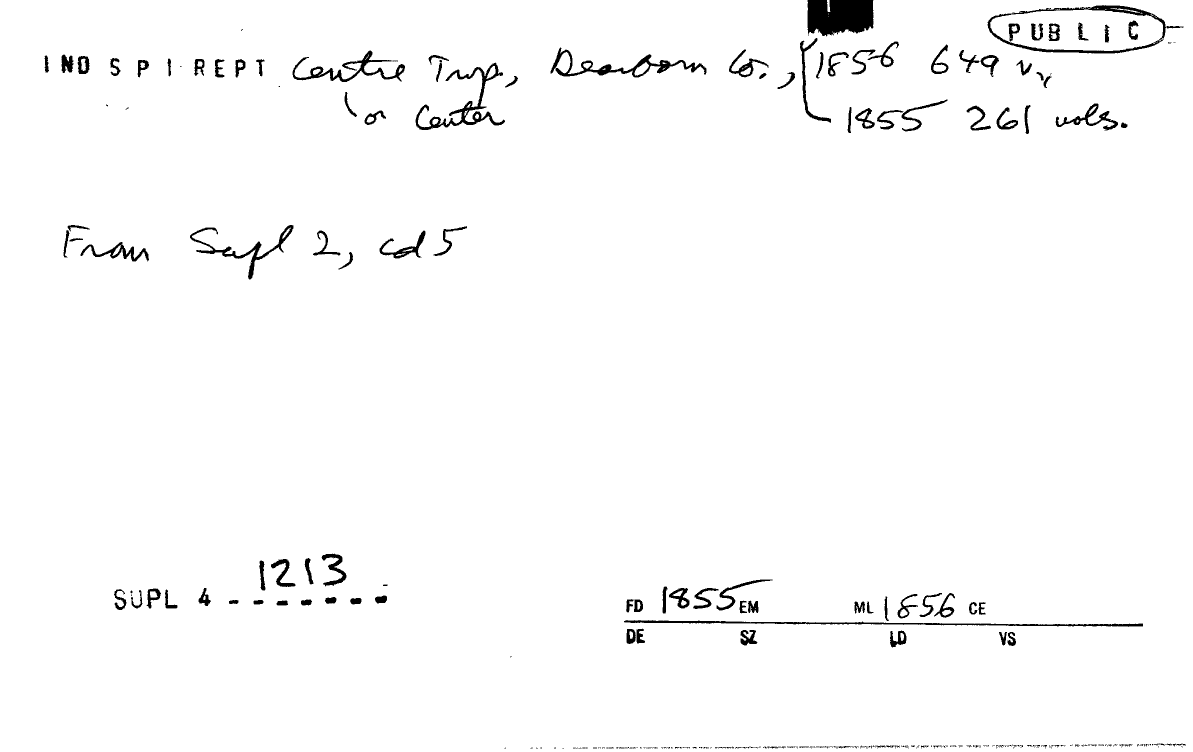 PUBLIC
IND SPI REPT Centre Twp., Dearborn Co., 1856 649 v.
or Center 1855 261 vols.
From Supl 2, cd 5
SUPL 4 1213
FD 1855 EM ML 1856 CE
DE SZ LD VS